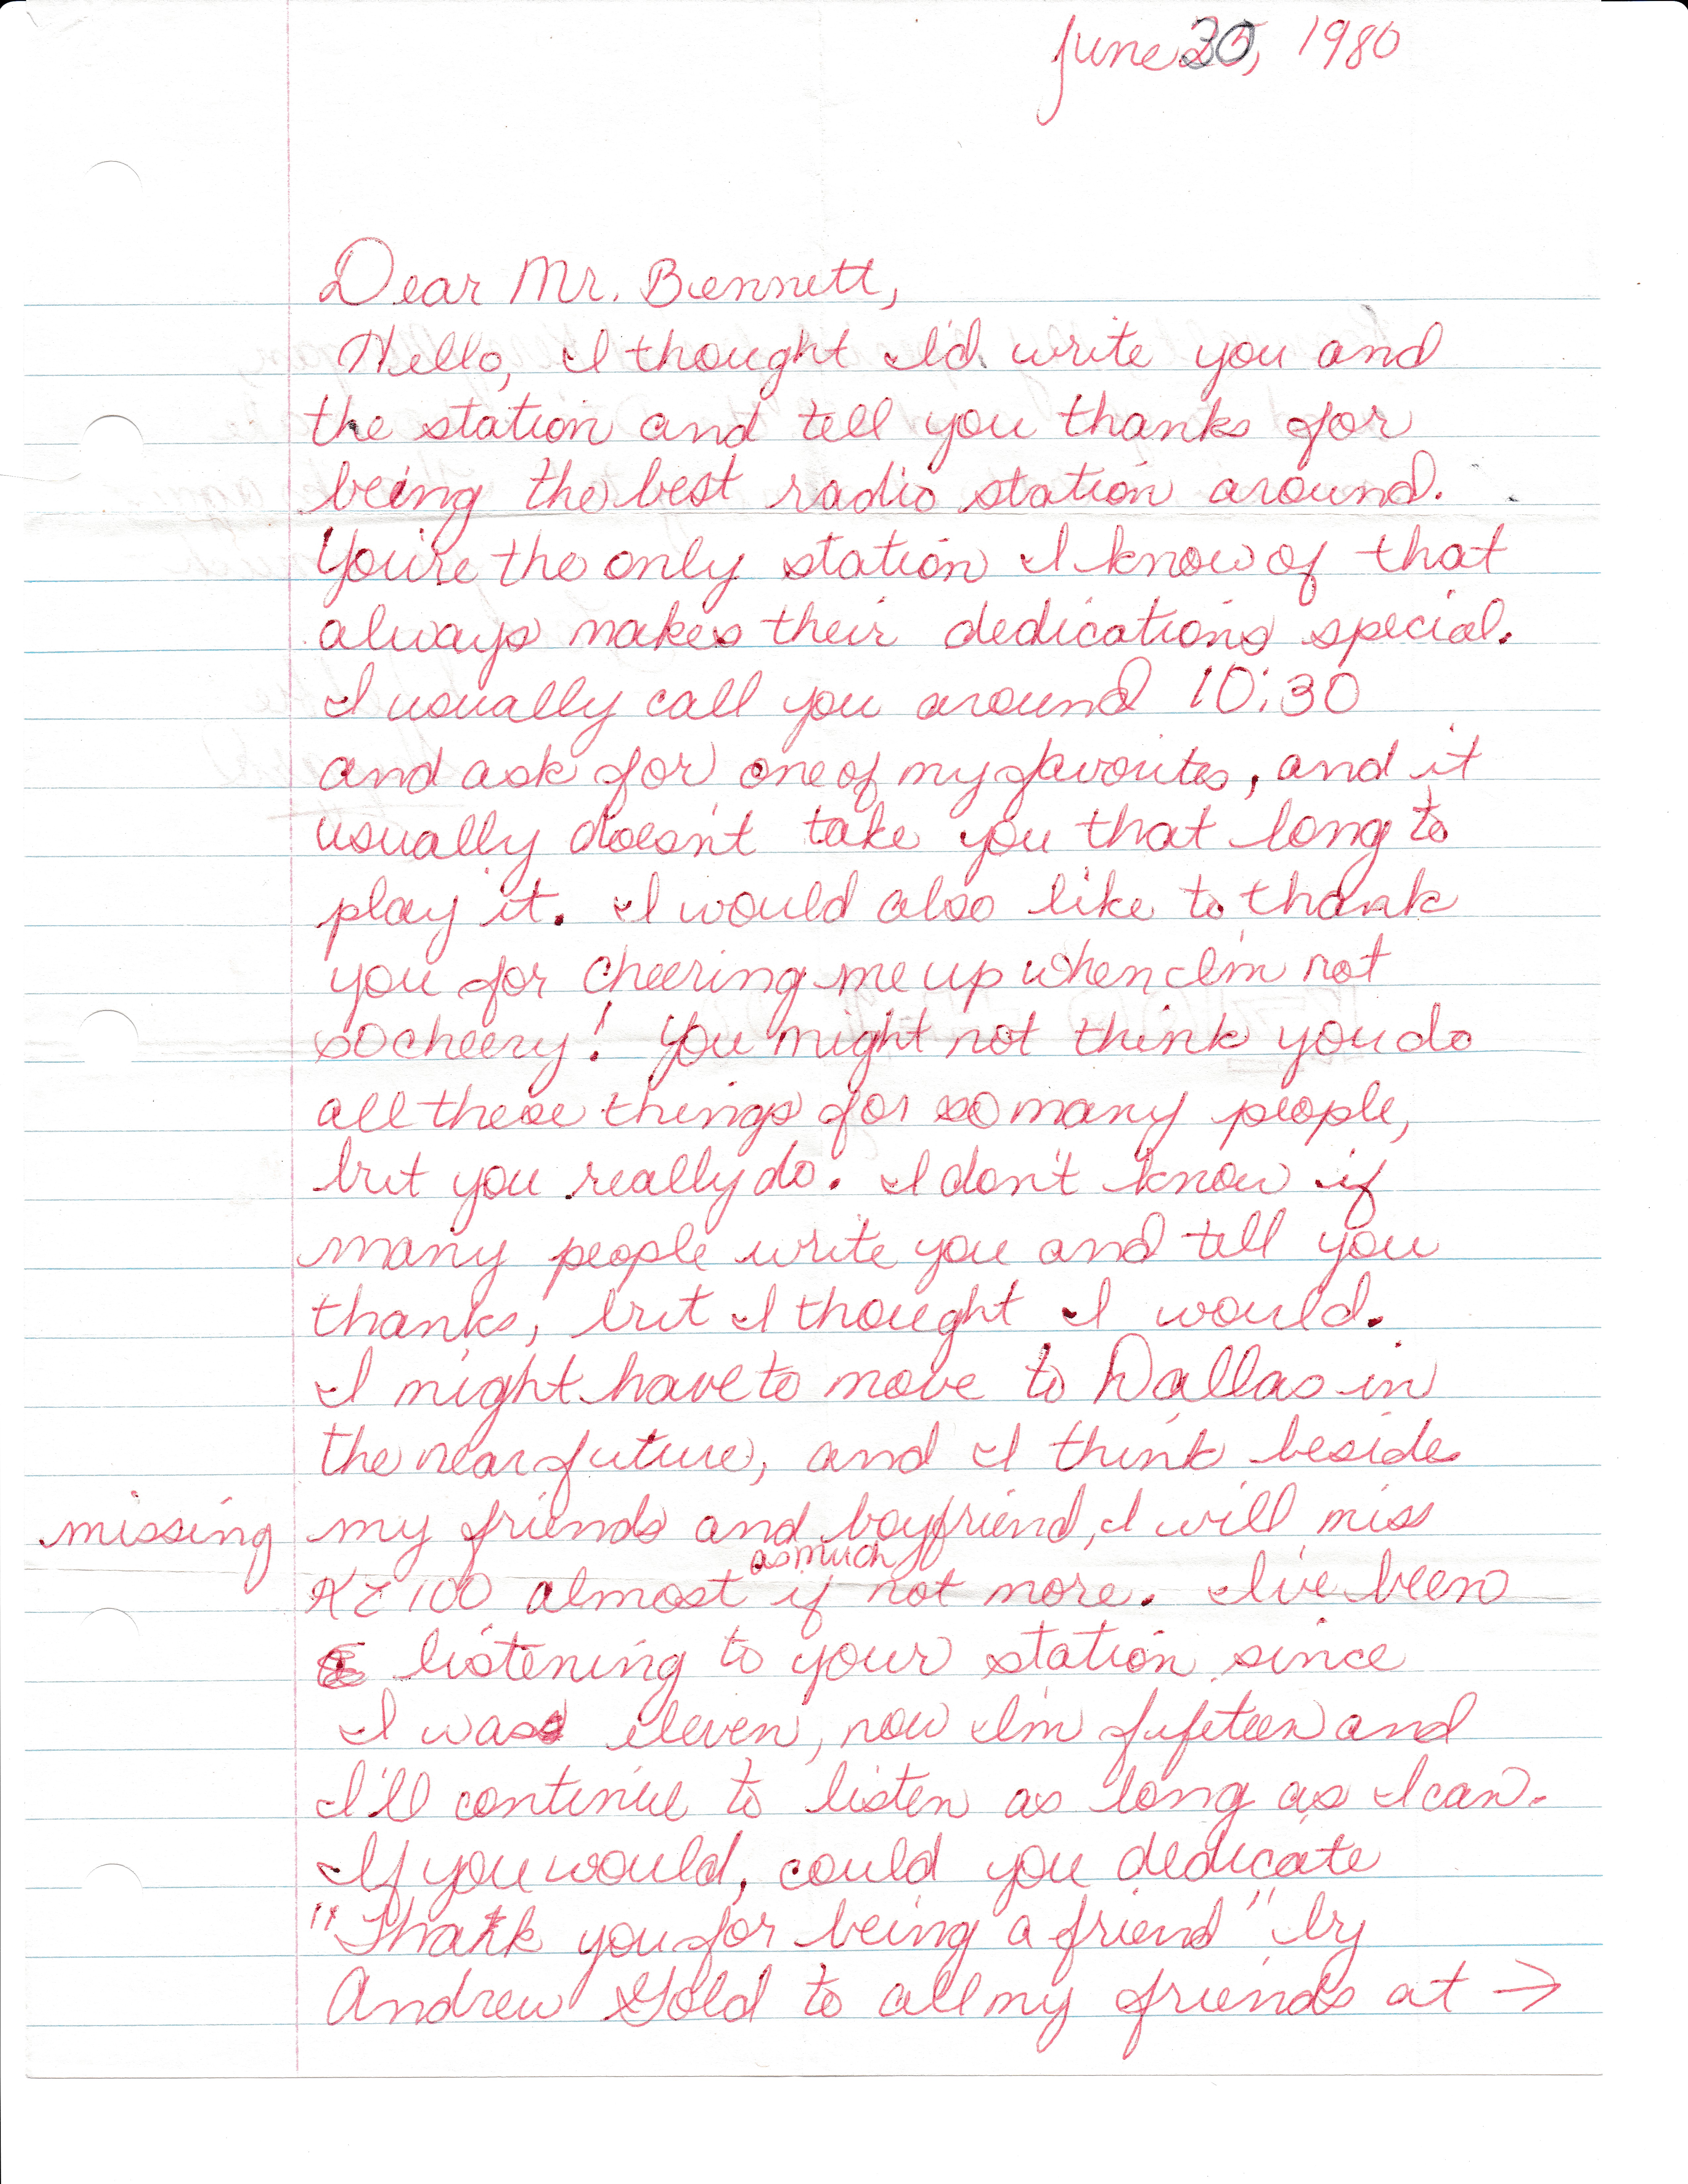 June 30, 1980
Dear Mr. Bennett,
Hello, I thought I'd write you and
the station and tell you thanks for
being the best radio station around.
You're the only station I know of that
always makes their dedications special.
I usually call you around 10:30
and ask for one of my favorites, and it
usually doesn't take you that long to
play it. I would also like to thank
you for cheering me up when I'm not
so cheery! You might not think you do
all these things for so many people,
but you really do. I don't know if
many people write you and tell you
thanks, but I thought I would.
I might have to move to Dallas in
the near future, and I think beside
missing my friends and boyfriend, I will miss
as much
KZ100 almost if not more. I've been
listening to your station since
I was eleven, now I'm fufeteen and
I'll continue to listen as long as I can.
If you would, could you dedicate
"Thank you for being a friend" by
Andrew Gold to all my friends at →